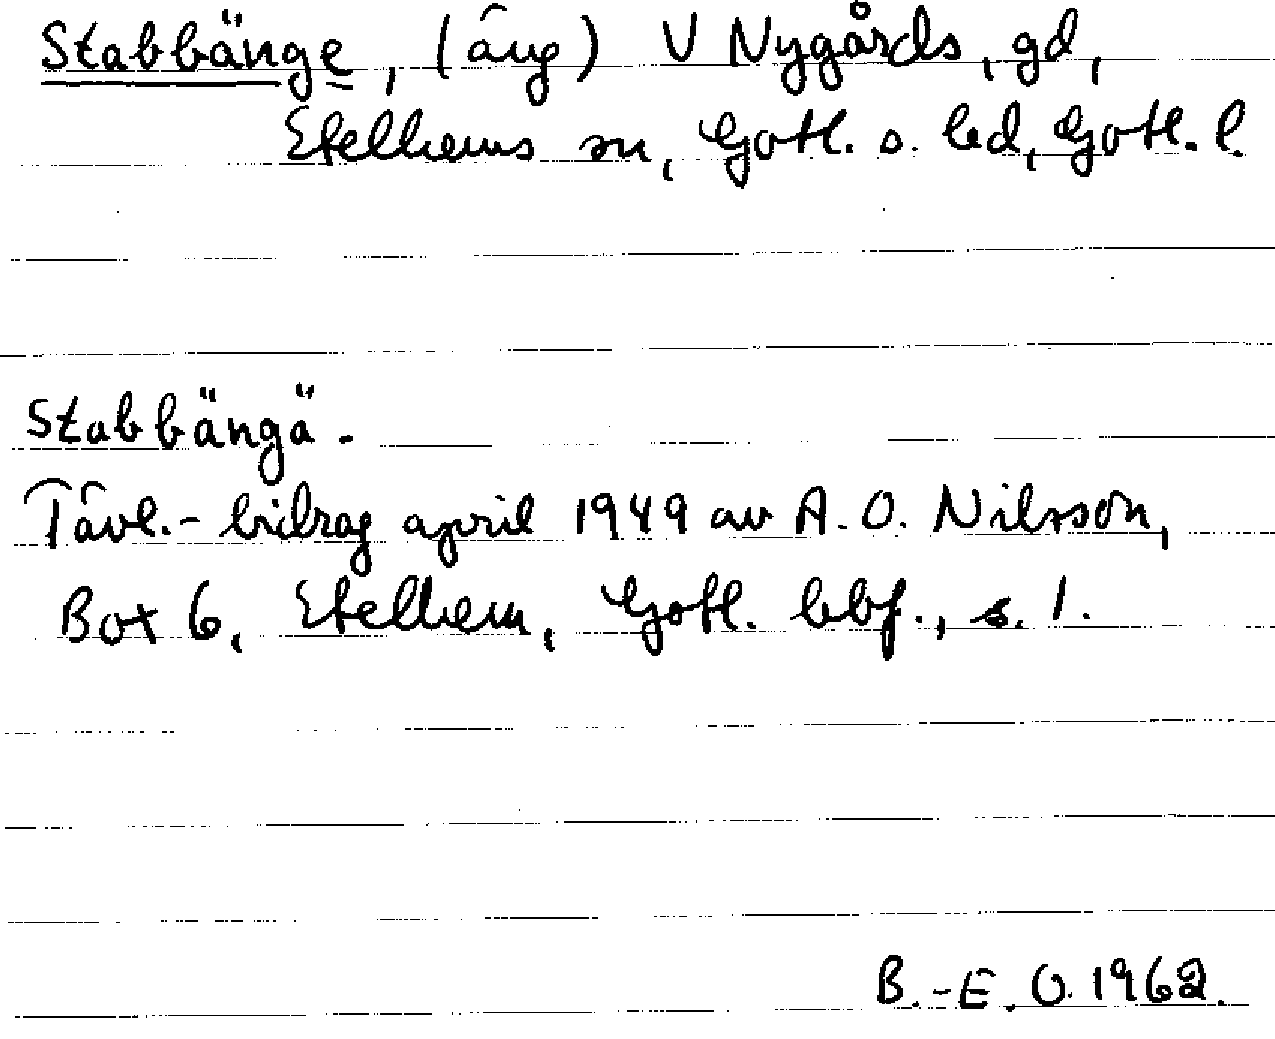 Stabbänge, (äng) V Nygårds, gd,
Etelhems sn, Gotl. s. hd, Gotl. l.
Stabbängä.
Tävl.-bidrag april 1949 av A. O. Nilsson,
Box 6, Etelhem, Gotl. hbf., s. 1.
B.-E. O. 1962.